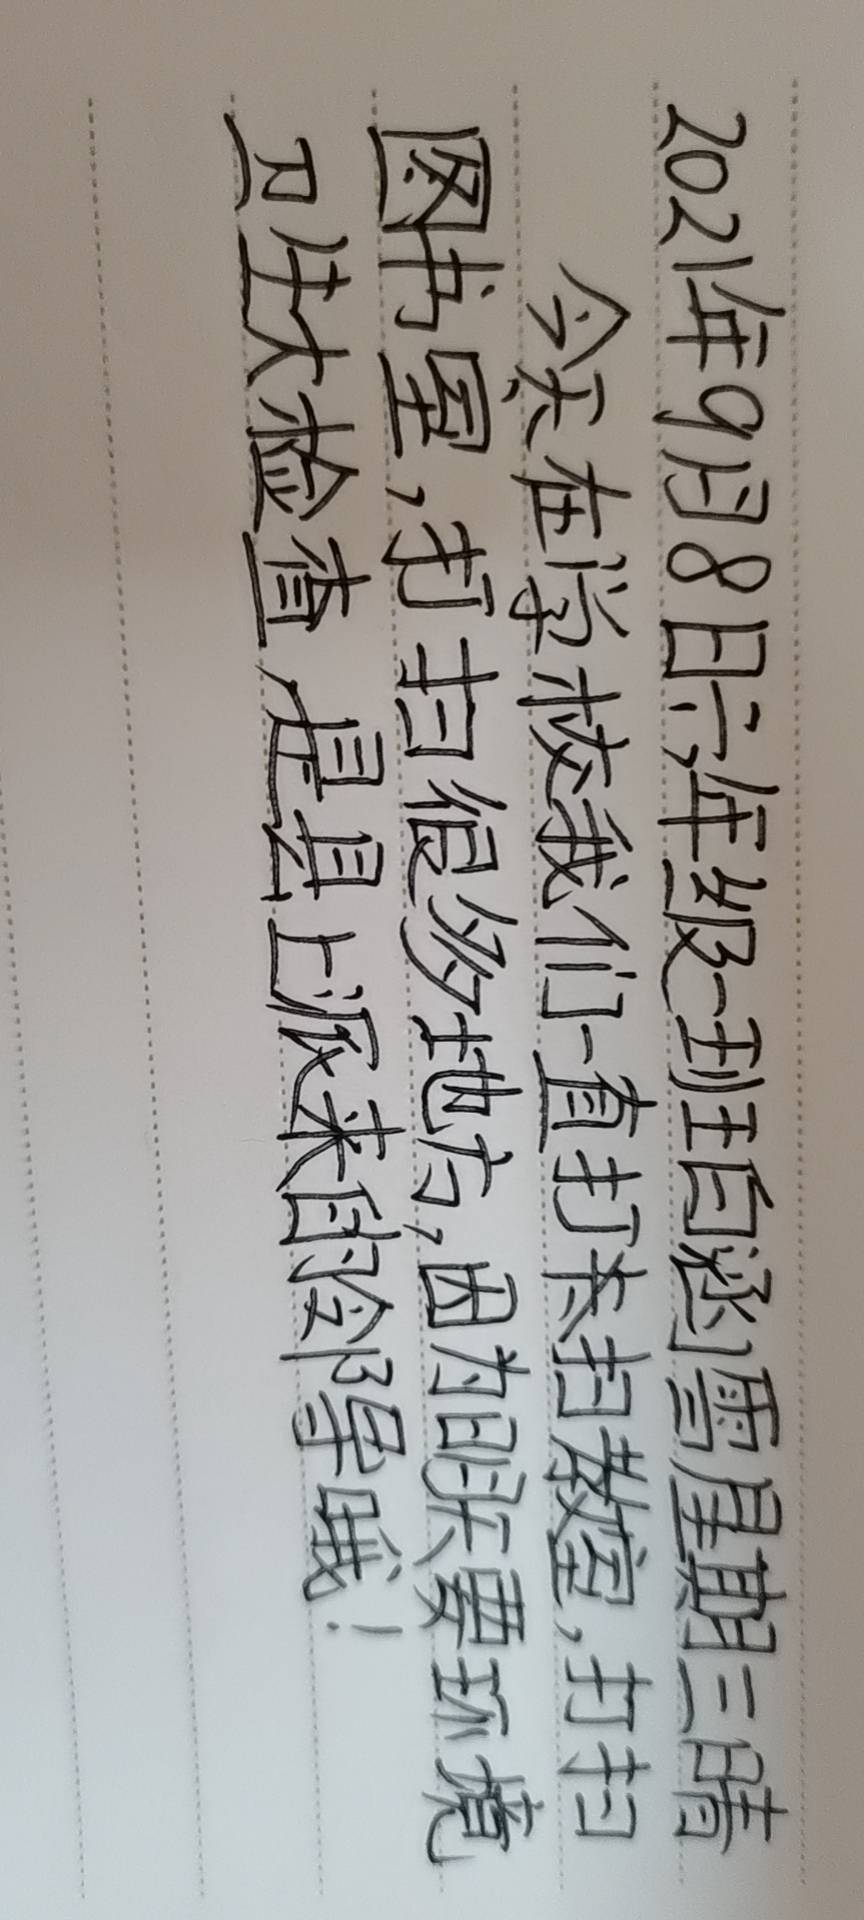 2021年9月8日六年级一班白涵雪星期三晴
今天在学校我们一直打扫教室,打扫
图书室,打扫很多地方,因为明天要环境
卫生大检查,是县上派来的领导哦!